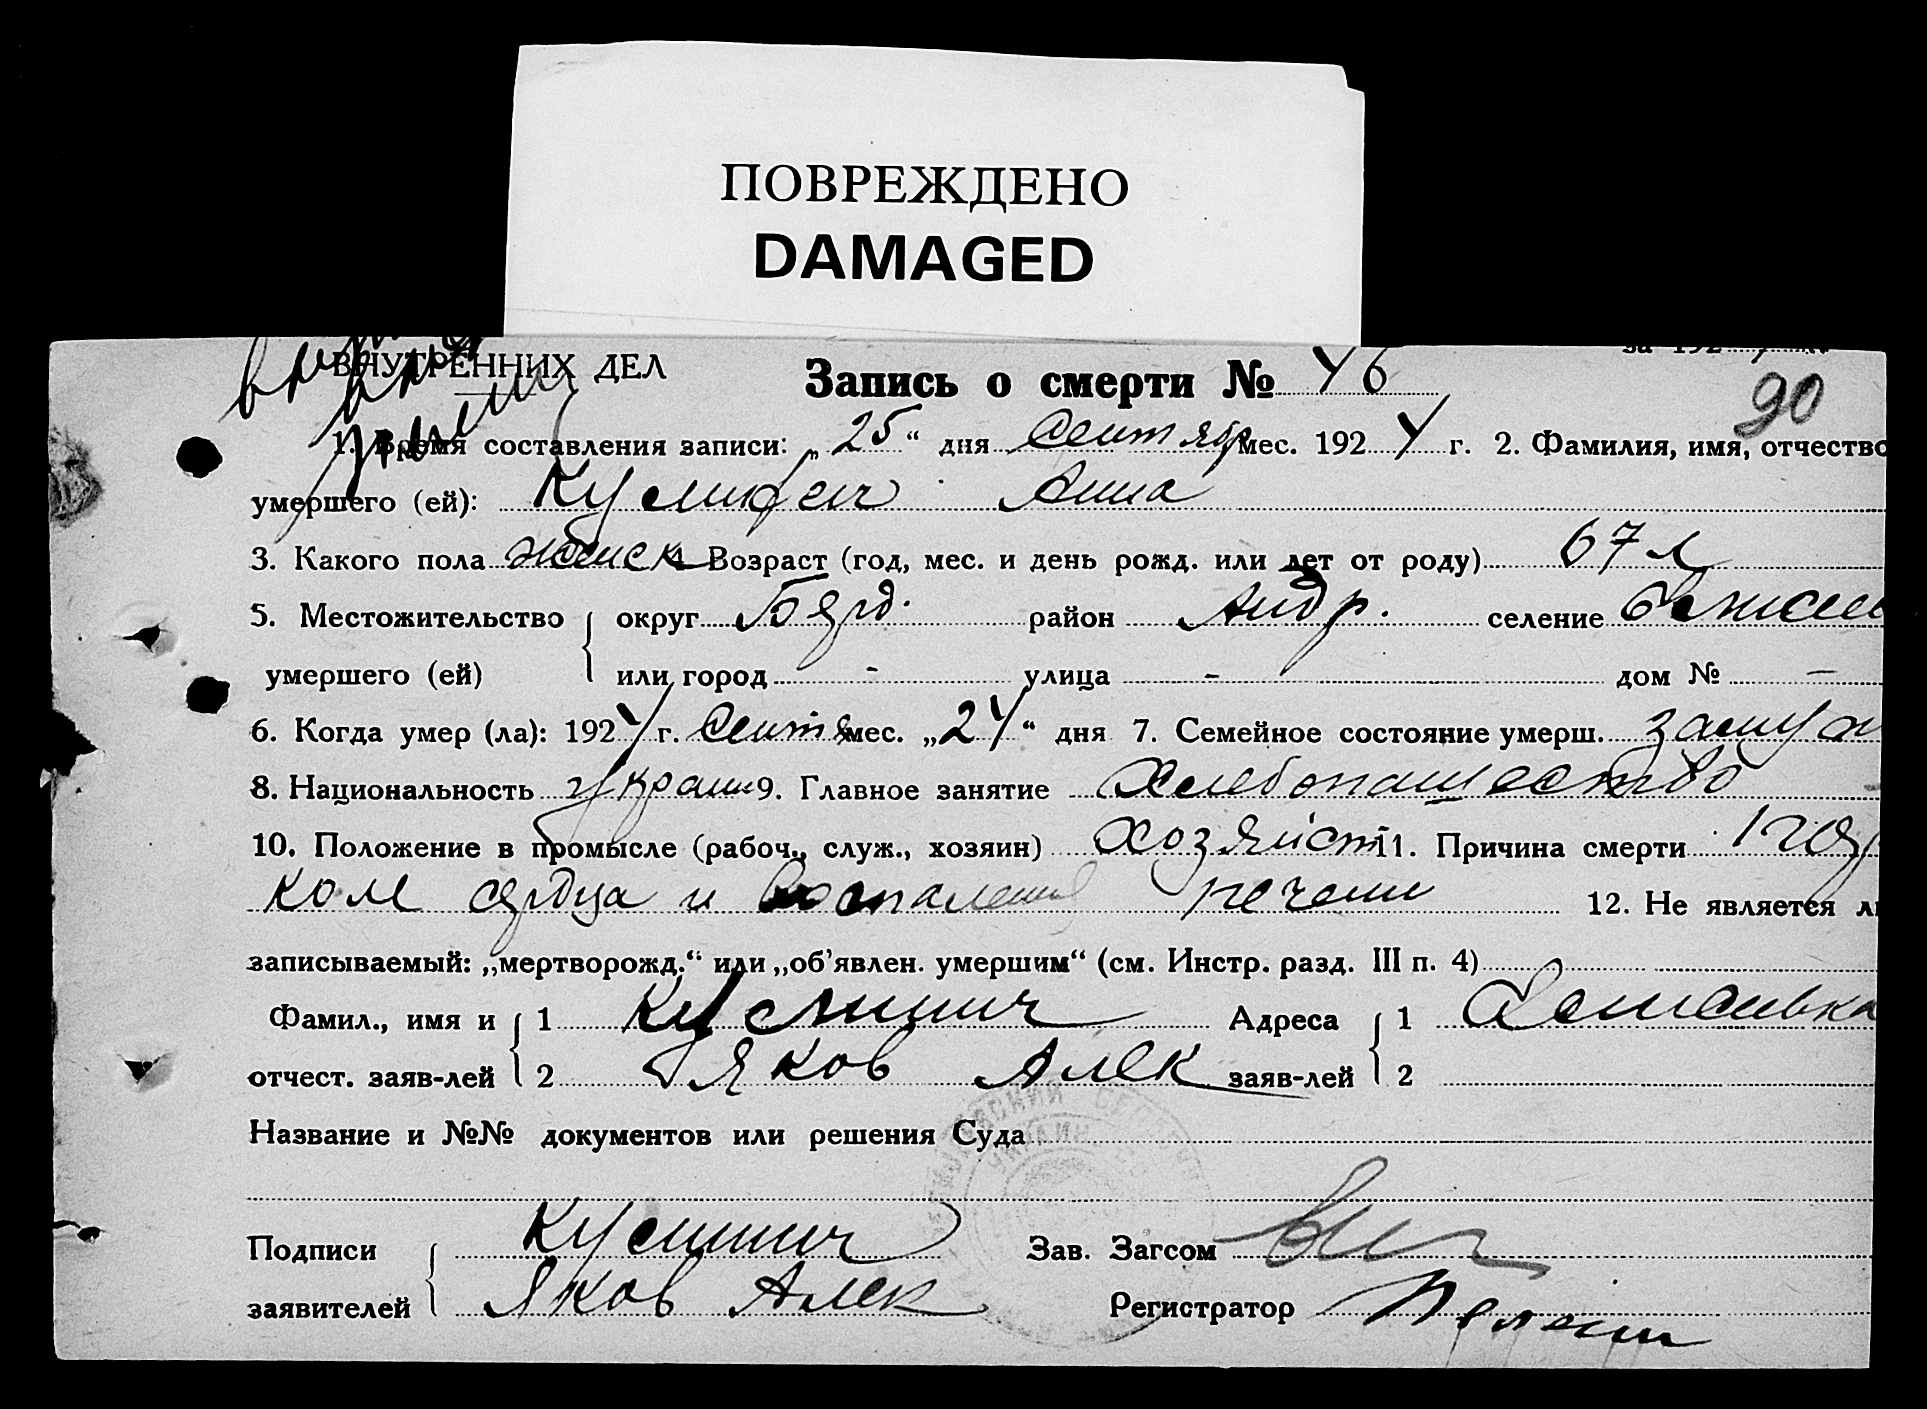 ПОВРЕЖДЕНО
DAMAGED
ВНУТРЕННИХ ДЕЛ
Запись о смерти № 46
90
1. Время составления записи: „25“ дня Сентября мес. 1924 г. 2. Фамилия, имя, отчество
умершего (ей): Анна
3. Какого пола женск 4. Возраст (год, мес. и день рожд. или лет от роду) 67 л
5. Местожительство округ Бярд. район Андр. селение
умершего (ей) или город - улица - дом № -
6. Когда умер (ла): 1924 г. Сентя мес. „24“ дня 7. Семейное состояние умерш. замуж
8. Национальность украин 9. Главное занятие Хлебопашество
10. Положение в промысле (рабоч., служ., хозяин) хозяйст 11. Причина смерти
ком сердца и воспаления печени 12. Не является ли
записываемый: „мертворожд.“ или „об’явлен. умершим“ (см. Инстр. разд. III п. 4)
Фамил., имя и 1 Кусминич Адреса 1
отчест. заяв-лей 2 Яков Алек заяв-лей 2
Название и №№ документов или решения Суда
Подписи Кусминич Зав. Загсом
заявителей Яков Алек Регистратор